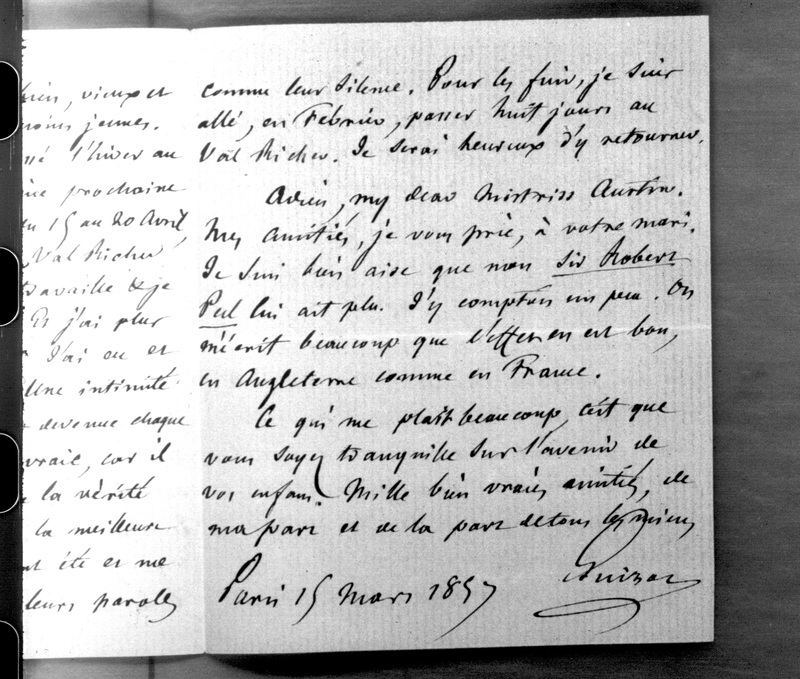 bien, vieux et
moins jeunes.
l'hiver au
prochaine
du 15 au 20 Avril,
Val Richer
travaille & je
Et j'ai plus
J'ai eu et
Une intimité
devenue chaque
vraie, car il
la vérité
la meilleure
été et me
leurs paroles
comme leur silence. Pour les finir, je suis
allé, en Février, passer huit jours au
Val Richer. Je serai heureux d'y retourner.
Adieu, my dear Mistriss Austin.
Mes amitiés, je vous prie, à votre mari.
Je suis bien aise que mon Sir Robert
Peel lui ait plu. J'y comptois un peu. On
m'écrit beaucoup que l'effet en est bon,
en Angleterre comme en France.
Ce qui me plaît beaucoup, c'est que
vous soyez tranquille sur l'avenir de
vos enfans. Mille bien vraies amitiés, de
ma part et de la part de tous les miens
Guizot
Paris 15 Mars 1857